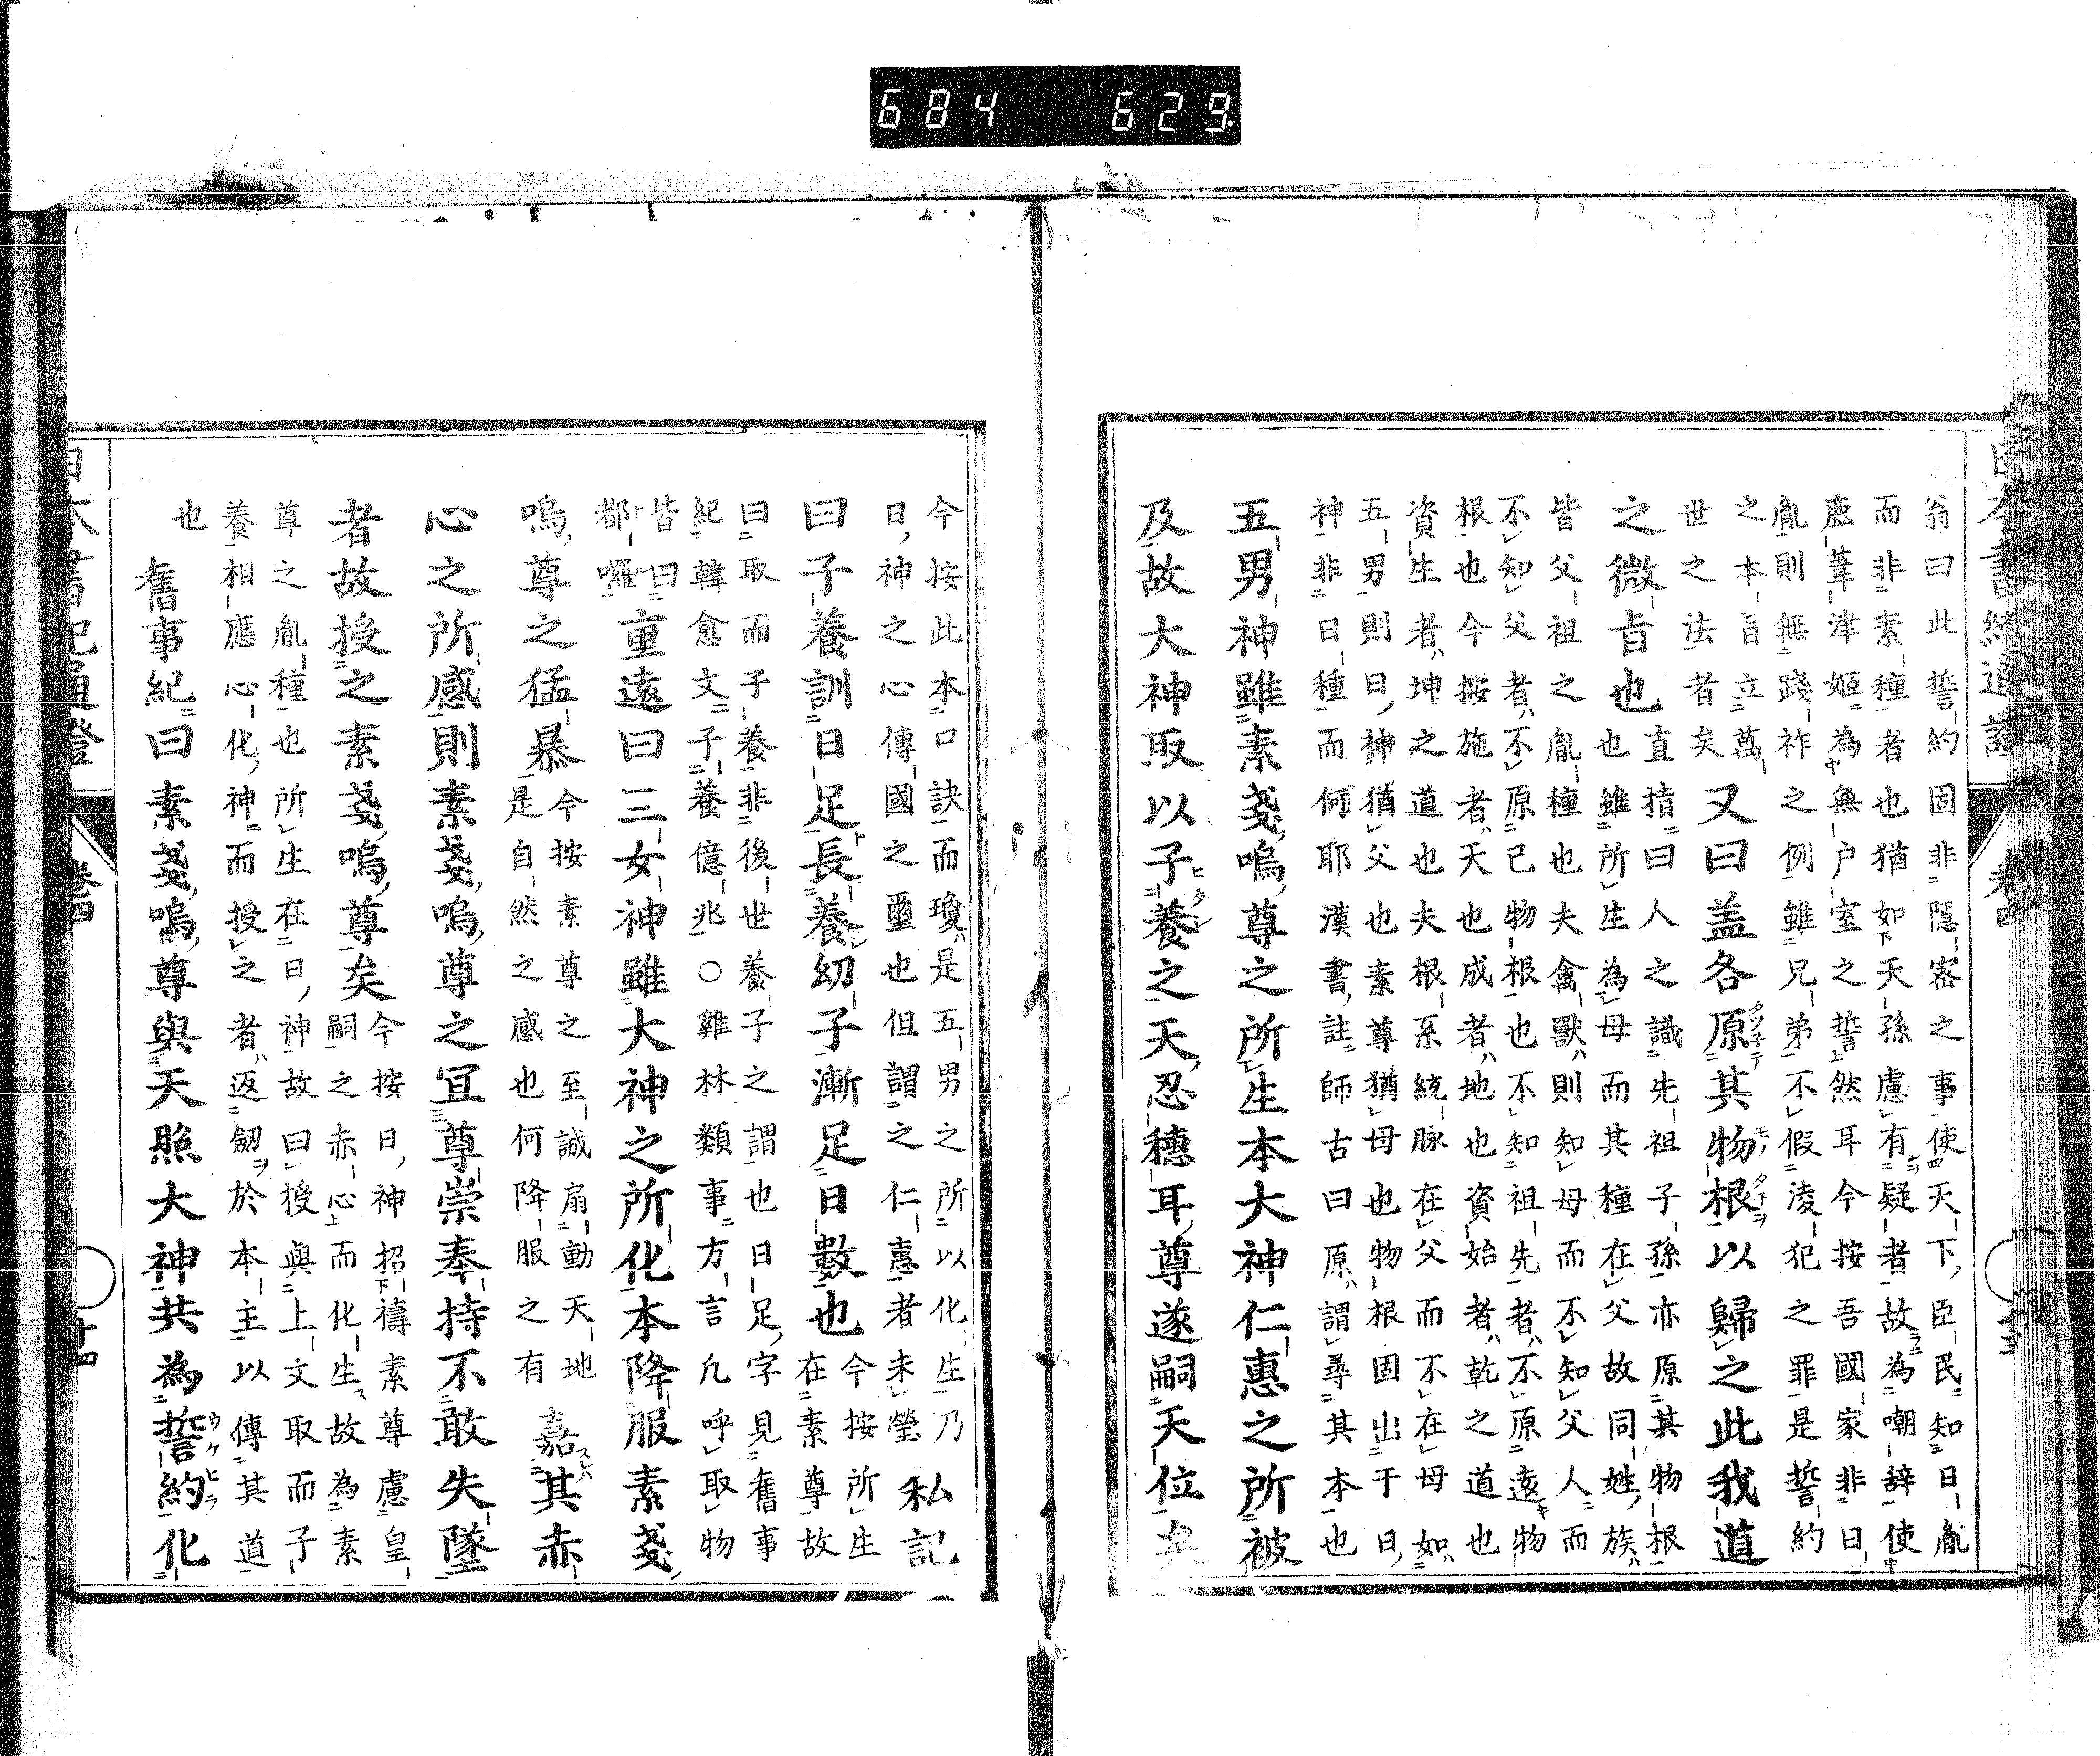 翁曰此誓約固非隱密之事使天下臣民知日胤
而非素種者也猶如天孫慮有疑者故為嘲辞使
鹿葦津姬為無戸室之誓然耳今按吾國家非日
胤則無踐祚之例雖兄弟不假淩犯之罪是誓約
之本旨立萬
世之法者矣
又曰盖各原其物根以歸之此我道
之微旨也
直指曰人之識先祖子孫亦原其物根
也雖所生為母而其種在父故同姓族
皆父祖之胤種也夫禽獸則知母而不知父人而
不知父者不原己物根也不知祖先者不原遠物
根也今按施者天也成者地也資始者乾之道也
資生者坤之道也夫根系統脉在父而不在母如
五男則日神猶父也素尊猶母也物根固出于日
神非日種而何耶漢書註師古曰原謂尋其本也
五男神雖素戔嗚尊之所生本大神仁惠之所被
及故大神取以子養之天忍穗耳尊遂嗣天位矣
今按此本口訣而瓊是五男之所以化生乃
日神之心傳國之璽也但謂之仁惠者未瑩
私記
曰子養訓日足長養幼子漸足日數也
今按所生
在素尊故
曰取而子養非後世養子之謂也日足字見舊事
紀韓愈文子養億兆○雞林類事方言凡呼取物
皆曰
都囉
重遠曰三女神雖大神之所化本降服素戔
嗚尊之猛暴
今按素尊之至誠扇動天地
是自然之感也何降服之有
嘉其赤
心之所感則素戔嗚尊之冝尊崇奉持不敢失墜
者故授之素戔嗚尊矣
今按日神招禱素尊慮皇
嗣之赤心而化生故為素
尊之胤種也所生在日神故曰授與上文取而子
養相應心化神而授之者返劔於本主以傳其道
也
舊事紀曰素戔嗚尊與天照大神共為誓約化
日本書紀通證
卷四
十四
684 629